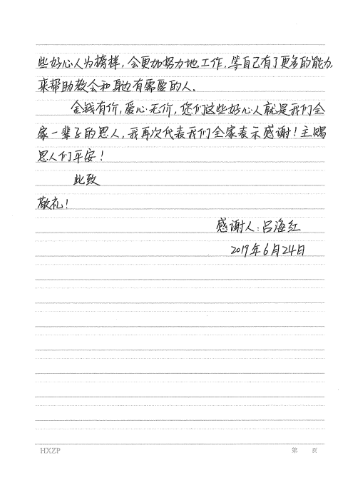 些好心人为榜样，会更加努力地工作，等自己有了更多的能力，
来帮助教会和身边有需要的人．
金钱有价，爱心无价，您们这些好心人就是我们全
家一辈子的恩人，我再次代表我们全家表示感谢！主赐
恩人们平安！
此致
敬礼！
感谢人：吕海红
2017年6月24日
HXZP
第 页